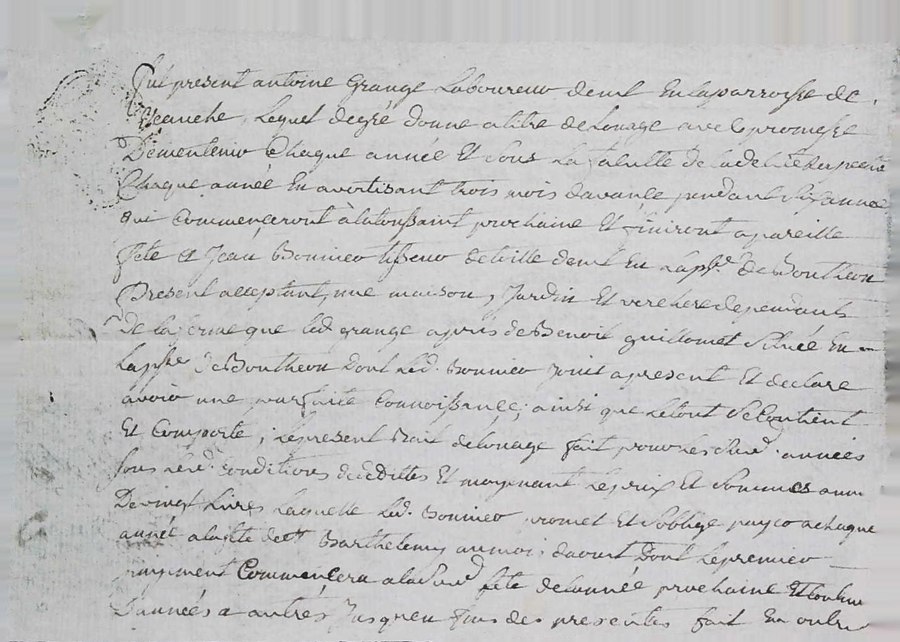 fut present antoine Grange Laboureur demt En laparroisse de
Veauche, Lequel degré donne atitre delouage avec promesse
Demantenir Chaque année Et Sous La faculté de
Chaque année En avertisant trois mois davance pendant Six année
qui Commenceront alatoussaint prochaine Et finiront apareille
fete et Jean Bonnier tisseur detoille demt En Lapsse de Boutheon
Present acceptant, une maison, Jardin Et verchere dependants
De la ferme que led grange apris de Benoit guillomet Située En
Lapsse de Boutheon Dont Led. Bonnier Jouit apresent Et declare
avoir une parfaite Connoissance; ainsi que Letout Secontient
Et Comporte; Lepresent Bail delouage fait pour les Susd. années
Sous Lesd. Conditions Et moyenant Leprix Et Sommes
De vingt Livres Laquelle Led. Bonnier promet Et Soblige payer achaque
année alafete de St Barthelemy aumois daoust Dont Lepremier
payement Commencera alasusd fete delannée prochaine Et
Dannées a autres Jusquen fins des presentes fait En outre